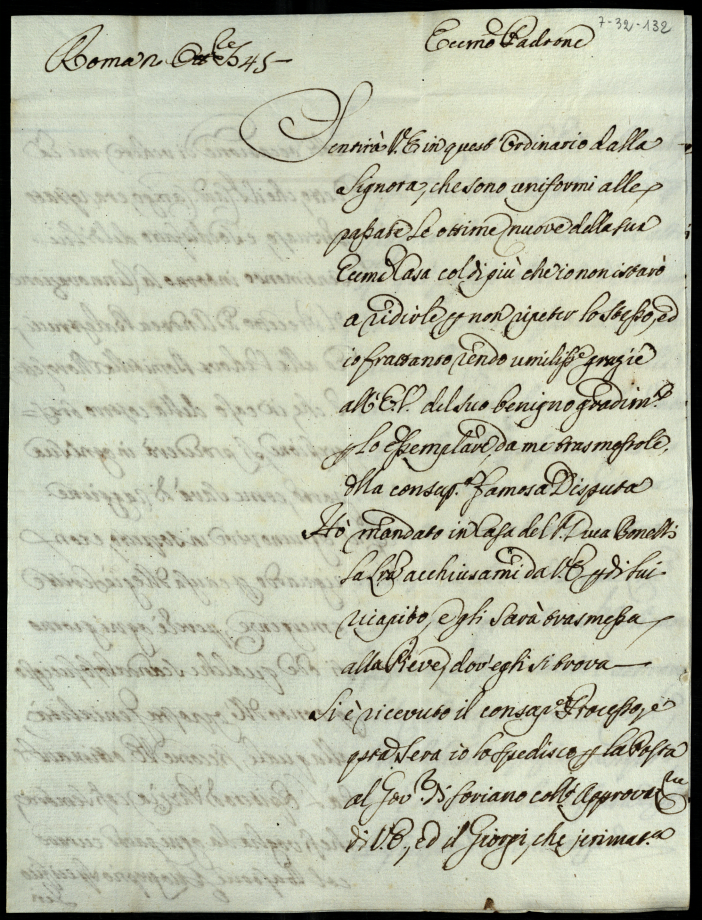 7-32-132
Roma 2 Ott.re 1745
Ecc.mo Padrone
Sentirà V.E. in quest'Ordinario dalla
Signora, che sono uniformi alle
passate le ottime nuove della sua
Ecc.ma Casa col di più che io non istarò
a ridirle p non ripeter lo stesso, ed
io frattanto rendo umiliss.e grazie
all'E.V. del suo benigno gradim.to
p lo essemplare da me trasmessole,
della consap.a famosa Disputa
Hò mandato in Casa del S.r Luca Bonelli
la lra acchiusami da V.E. p di lui
ricapito, e gli sarà trasmessa
alla Pieve, dov'egli si trova
Si è ricevuto il consap.e Processo, e
qsta sera io lo spedisco p la Posta
al Gov.re di Soriano coll'Approvaz.ne
di V.E., ed il Giorgi, che jerimat.a